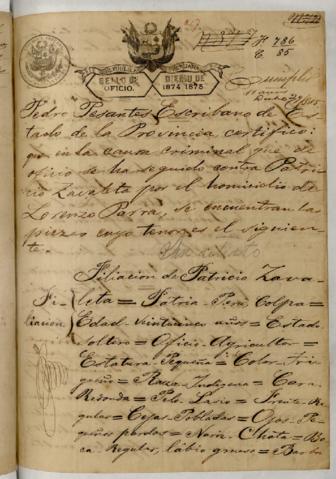 786
85
SELLO DE OFICIO.
BIENIO DE 1874 1875
Pedro Pesantes Escribano de Es-
tado de la Provincia certifico:
que en la causa criminal que de
oficio se ha seguido contra Patri-
cio Zavaleta por el homicidio de
Lorenzo Parra, se encuentran las
piezas cuyo tenor es el siguien-
te.
Filiacion de Patricio Zava-
Fi-
liacion
leta = Patria Perú Colpa =
Edad veinticinco años = Estado
soltero = Oficio Agricultor =
Estatura Pequeña = Color Tri-
gueño = Raza Indígena = Cara
Redonda = Pelo Lacio = Frente Re-
gular = Cejas Pobladas = Ojos Pe-
queños pardos = Nariz Chata = Bo-
ca Regular, labio grueso = Barba